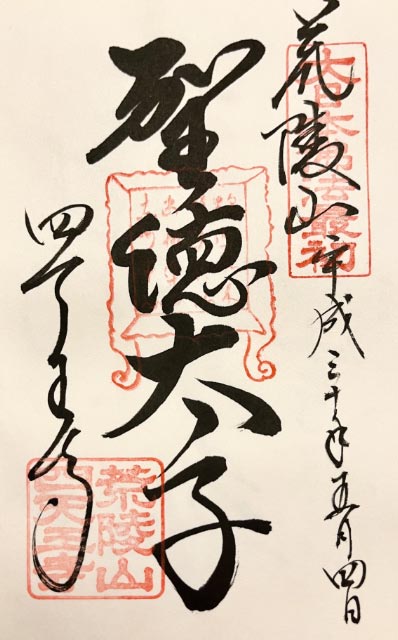 荒陵山 平成三十年五月四日
大日本佛法最初
聖徳太子
四天王寺
荒陵山
四天王寺